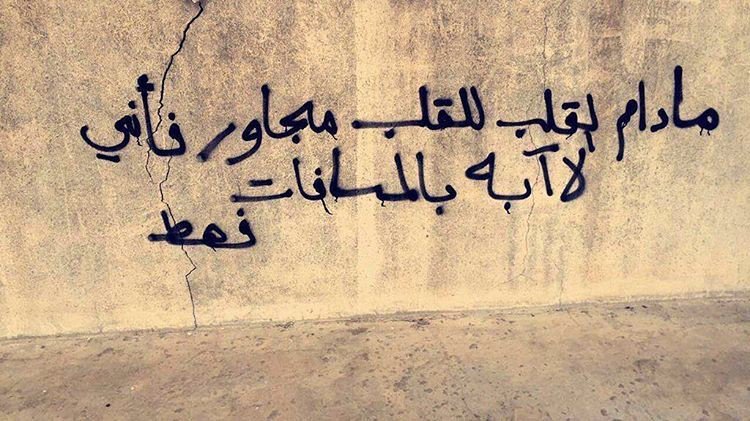 مادام لقلب للقلب مجاور فأني
لا آبه بالمسافات